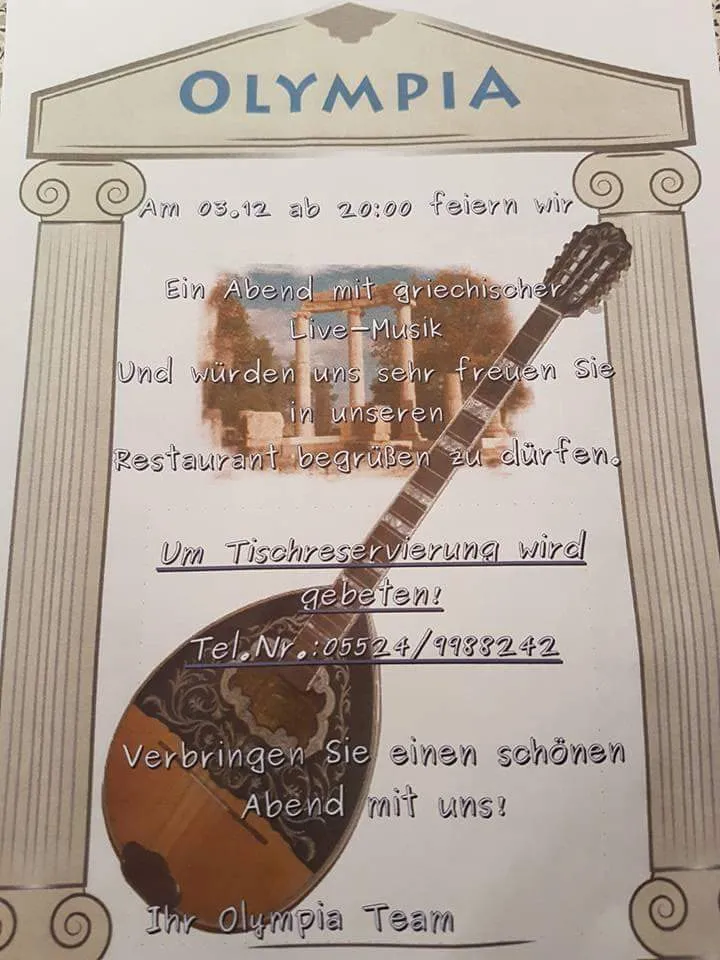 OLYMPIA
Am 03.12 ab 20:00 feiern wir
Ein Abend mit griechischer
Live-Musik
Und würden uns sehr freuen Sie
in unseren
Restaurant begrüßen zu dürfen.
Um Tischreservierung wird
gebeten!
Tel.Nr.:05524/9988242
Verbringen Sie einen schönen
Abend mit uns!
Ihr Olympia Team